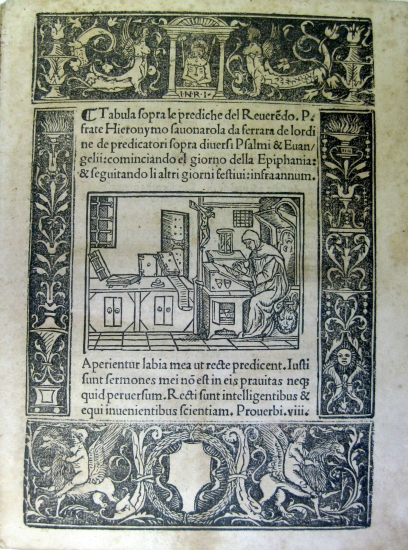 ·I·N·R·I·
☾ Tabula sopra le prediche del Reuerẽdo. P.
frate Hieronymo sauonarola da ferrara de lordi
ne de predicatori sopra diuersi Psalmi & Euan/
gelii: cominciando el giorno della Epiphania:
& seguitando li altri giorni festiui: infra annum.
Aperientur labia mea ut recte predicent. Iusti
sunt sermones mei nõ est in eis prauitas neqȝ
quid peruersum. Recti sunt intelligentibus &
equi inuenientibus scientiam. Prouerbi. viii.